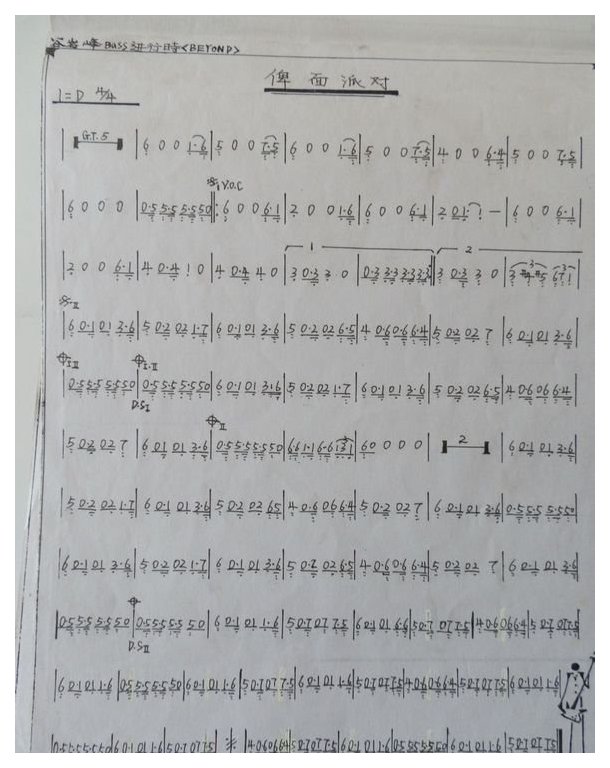 岩峰Bass进行时<BEYOND>
俾面派对
1=D 4/4
| G.T.5 | 6 0 0 1·6 | 5 0 0 7·5 | 6 0 0 1·6 | 5 0 0 7·5 | 4 0 0 6·4 | 5 0 0 7·5 |
V.O.C
| 6 0 0 0 | 0·5 5·5 5·5 50 |: 6 0 0 6·1 | 2 0 0 1·6 | 6 0 0 6·1 | 2 01· 1 — | 6 0 0 6·1 |
1 2
| 2 0 0 6·1 | 4 0·4 1 0 | 4 0·4 4 0 | 3 0·3 3 0 | 0·3 3·3 3·3 3·3 :| 3 0·3 3 0 | 3 #4 #5 6 7 1 |
II
| 6 0·1 01 3·6 | 5 0·2 02 1·7 | 6 0·1 01 3·6 | 5 0·2 02 6·5 | 4 0·6 0·6 6·4 | 5 0·2 02 7 | 6 0·1 01 3·6 |
I II I.II
| 0·5 5·5 5·5 50 | 0·5 5·5 5·5 50 | 6 0·1 01 3·6 | 5 0·2 02 1·7 | 6 0·1 01 3·6 | 5 0·2 02 6·5 | 4 0·6 06 6·4 |
D.S I
II
| 5 0·2 02 7 | 6 01 01 3·6 | 0·5 5·5 5·5 50 | 66 1·1 6·6 131 | 60 0 0 0 | 2 | 6 0·1 01 3·6 |
| 5 0·2 02 1·7 | 6 0·1 01 3·6 | 5 0·2 02 65 | 4 0·6 06 6·4 | 5 0·2 02 7 | 6 0·1 01 3·6 | 0·5 5·5 5·5 50 |
| 6 0·1 01 3·6 | 5 0·2 02 1·7 | 6 0·1 01 3·6 | 5 0·2 02 6·5 | 4 0·6 0·6 6·4 | 5 0·2 02 7 | 6 0·1 01 3·6 |
| 0·5 5·5 5·5 50 | 0·5 5·5 5·5 50 | 6 0·1 01 1·6 | 5 0·7 07 7·5 | 6 0·1 01 6·6 | 5 0·7 07 7·5 | 4 0·6 06 6·4 | 5 0·7 07 7·5 |
D.S II
| 6 0·1 01 1·6 | 0·5 5·5 5·5 50 | 6 0·1 01 1·6 | 5 0·7 07 7·5 | 6 0·1 01 1·6 | 5 0·7 07 7·5 | 4 0·6 0·6 6·4 | 5 0·7 07 7·5 | 6 0·1 01 1·6 |